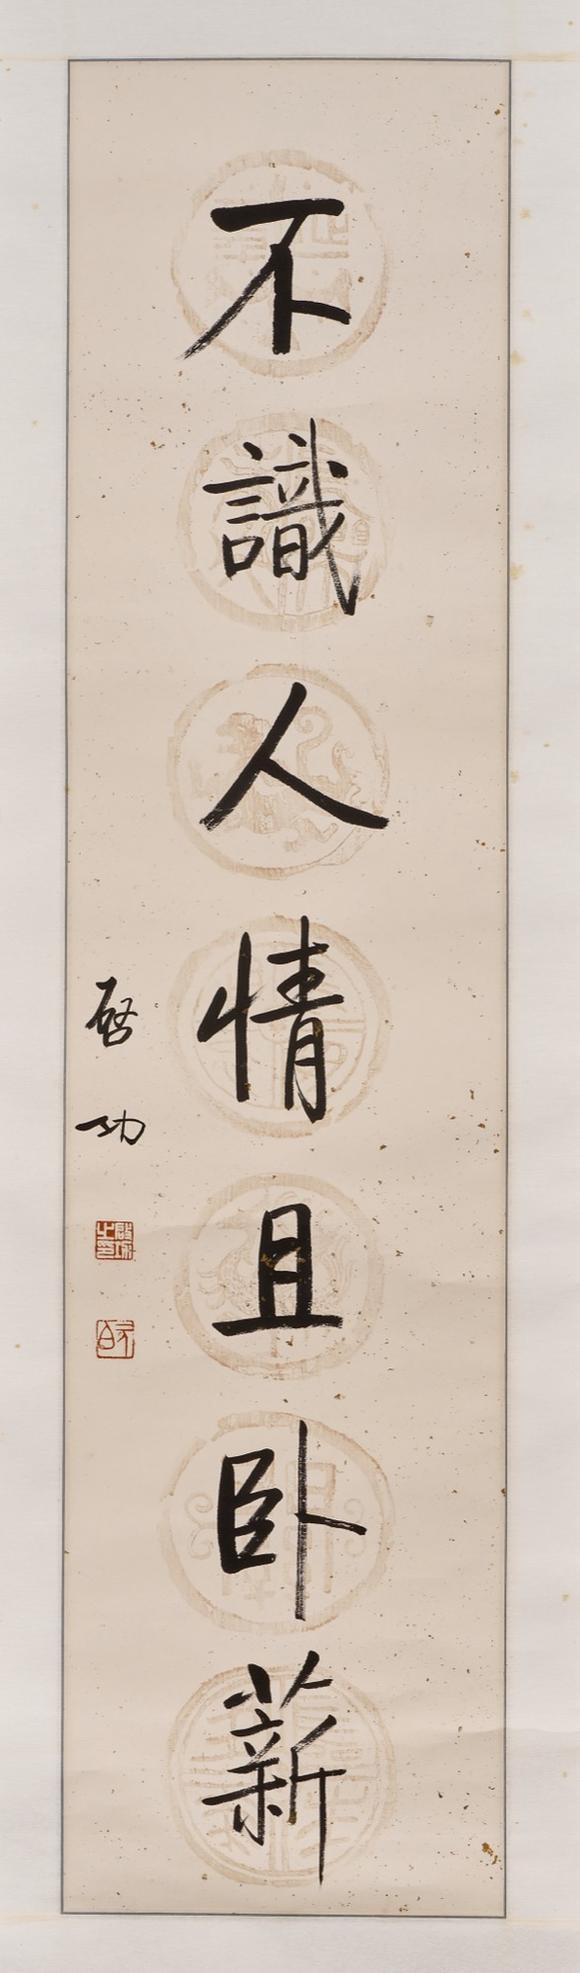 不識人情且卧薪
啓功